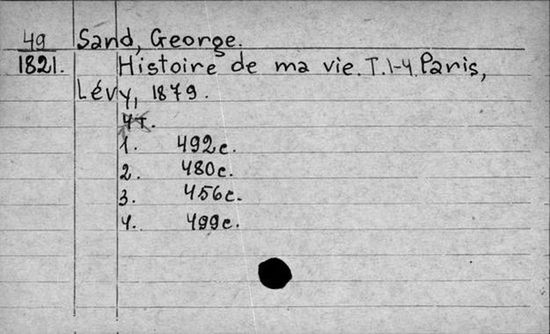 49 Sand, George.
1821. Histoire de ma vie. T.1-4. Paris,
Lévy, 1879.
4т.
1. 492с.
2. 480с.
3. 456с.
4. 499с.